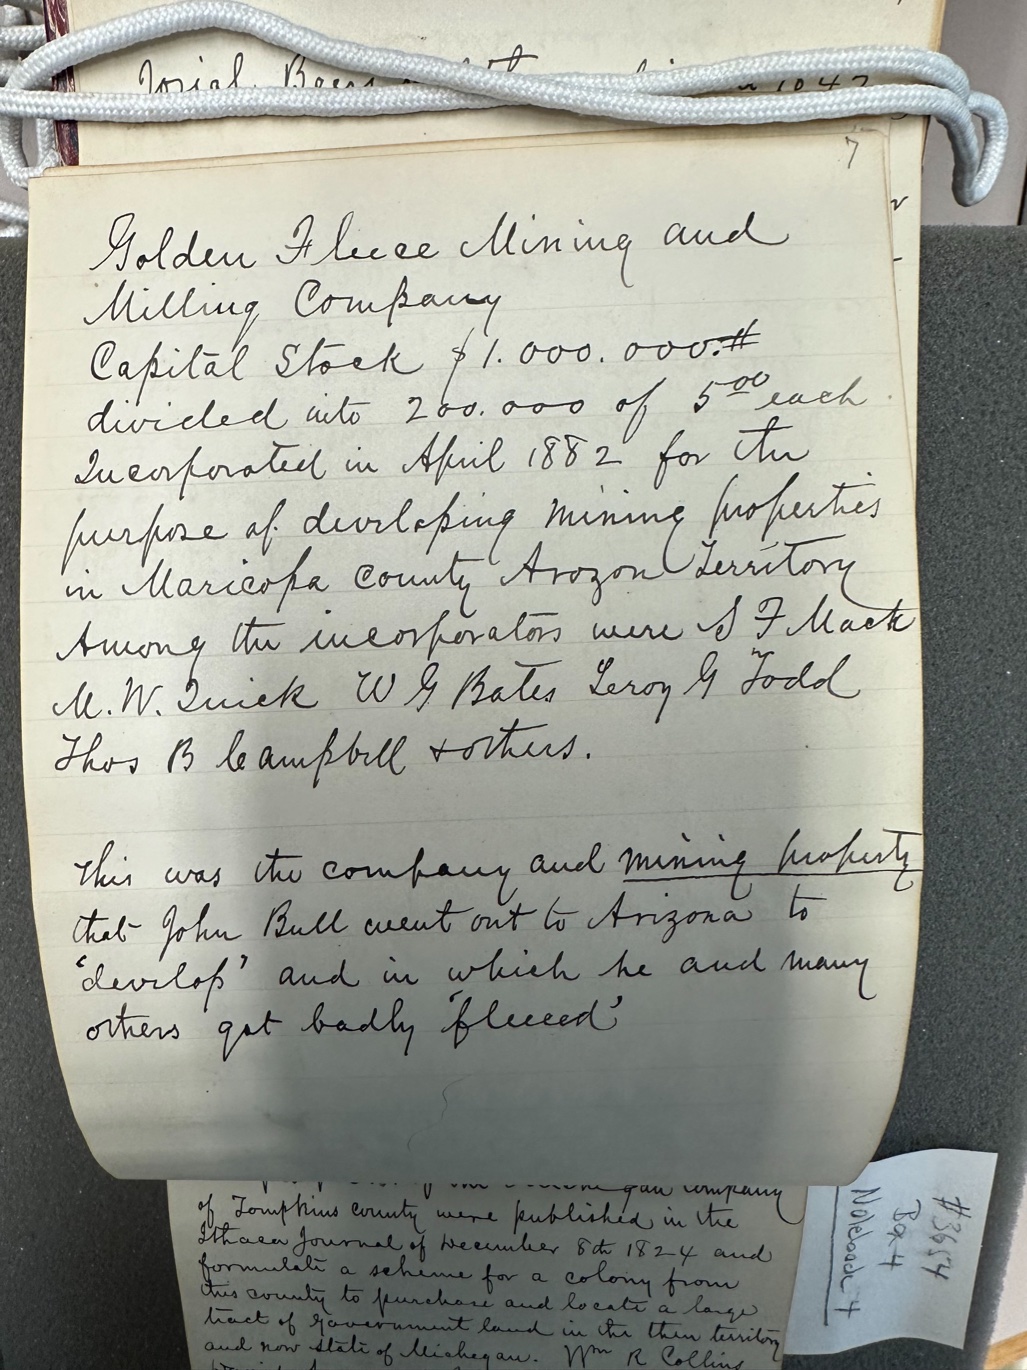 Josiah
7
Golden Fleece Mining and
Milling Company
Capital Stock $1.000.000.#
divided into 200.000 of 5 00 each
Incorporated in April 1882 for the
purpose of developing mining properties
in Maricopa County Arozon Territory
Among the incorporators were S F Mack
M. W. Quick W G Bates Leroy G Todd
Thos B Campbell + others.
This was the company and mining property
that John Bull went out to Arizona to
"develop" and in which he and many
others got badly 'fleeced'
company
of Tompkins county were published in the
Ithaca Journal of December 8th 1824 and
formulate a scheme for a colony from
this county to purchase and locate a large
tract of government land in the then territory
and now state of Michegan. Wm R Collins
#3654
Box 4
Notebook 4